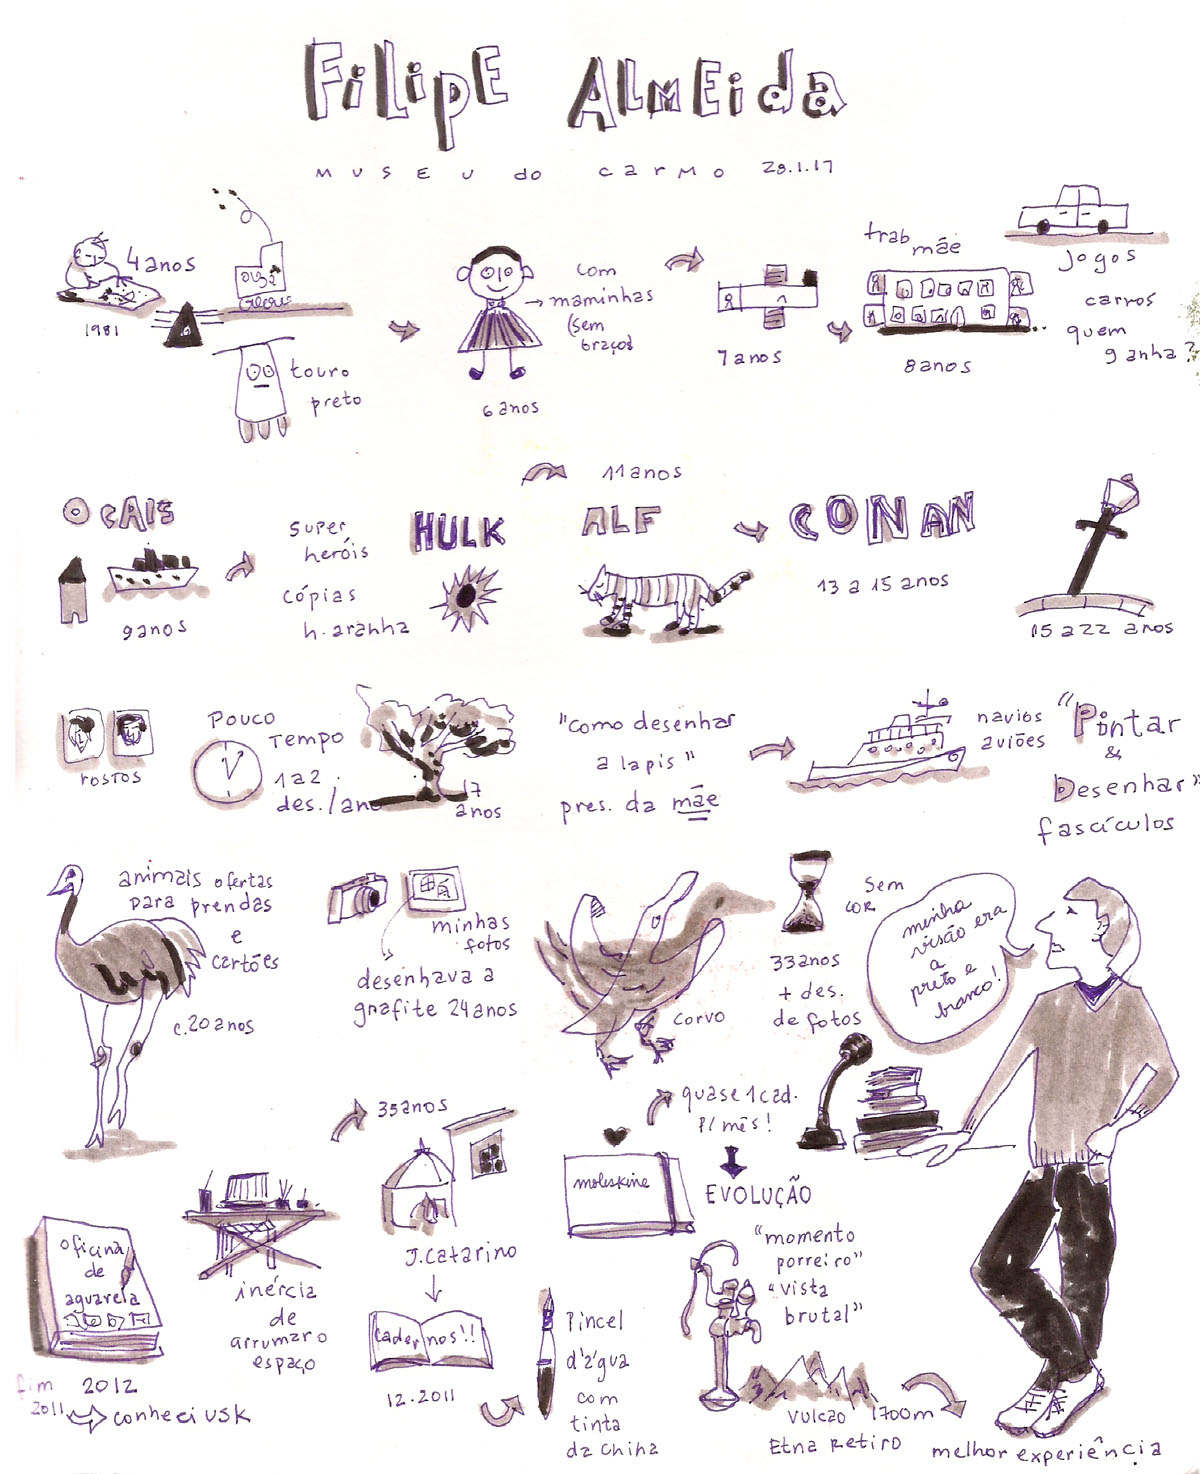 Filipe Almeida
museu do carmo 28.1.17
4 anos
1981
touro
preto
com
maminhas
(sem
braços
6 anos
7 anos
trab
mãe
8 anos
jogos
carros
quem
ganha?
O CAIS
9 anos
super
heróis
cópias
h. aranha
HULK
11 anos
ALF
CONAN
13 a 15 anos
15 a 22 anos
rostos
Pouco
Tempo
1 a 2
des./ano
17
anos
"Como desenhar
a lapis"
pres. da mãe
navios
aviões
"Pintar
&
Desenhar"
fascículos
animais ofertas
para prendas
e
cartões
c. 20 anos
minhas
fotos
desenhava a
grafite 24 anos
corvo
33 anos
+ des.
de fotos
Sem
cor
minha
visão era
a
preto e
branco!
oficina
de
aguarela
fim 2012
2011
conheci USK
inércia
de
arrumar o
espaço
35 anos
J. Catarino
cadernos!!
12.2011
quase 1 cad.
p/ mês!
moleskine
EVOLUÇÃO
"momento
porreiro"
"vista
brutal"
Pincel
d'água
com
tinta
da China
vulcão 1700m
Etna Retiro
melhor experiência